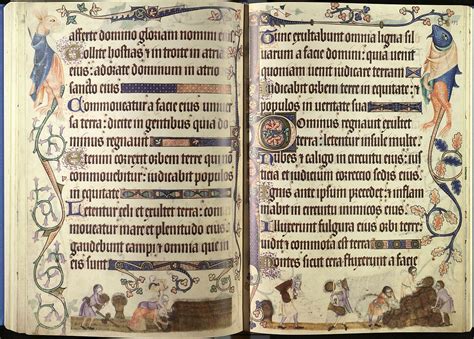 afferte domino gloriam nomini eius
Tollite hostias et introite in atria
eius: adorate dominum in atrio
sancto eius
Commoueatur a facie eius uniuer
sa terra: dicite in gentibus quia do
minus regnauit
Etenim correxit orbem terre qui non
commouebitur: iudicabit populos
in equitate
Letentur celi et exultet terra: com
moueatur mare et plenitudo eius:
gaudebunt campi et omnia que in
eis sunt
Tunc exultabunt omnia ligna sil
uarum a facie domini: quia uenit
quoniam uenit iudicare terram
Iudicabit orbem terre in equitate: et
populos in ueritate sua
Dominus regnauit exultet
terra: letentur insule multe
Nubes et caligo in circuitu eius: ius
ticia et iudicium correctio sedis eius
Ignis ante ipsum precedet: et inflam
mabit in circuitu inimicos eius
Illuxerunt fulgura eius orbi terre:
uidit et commota est terra
Montes sicut cera fluxerunt a facie